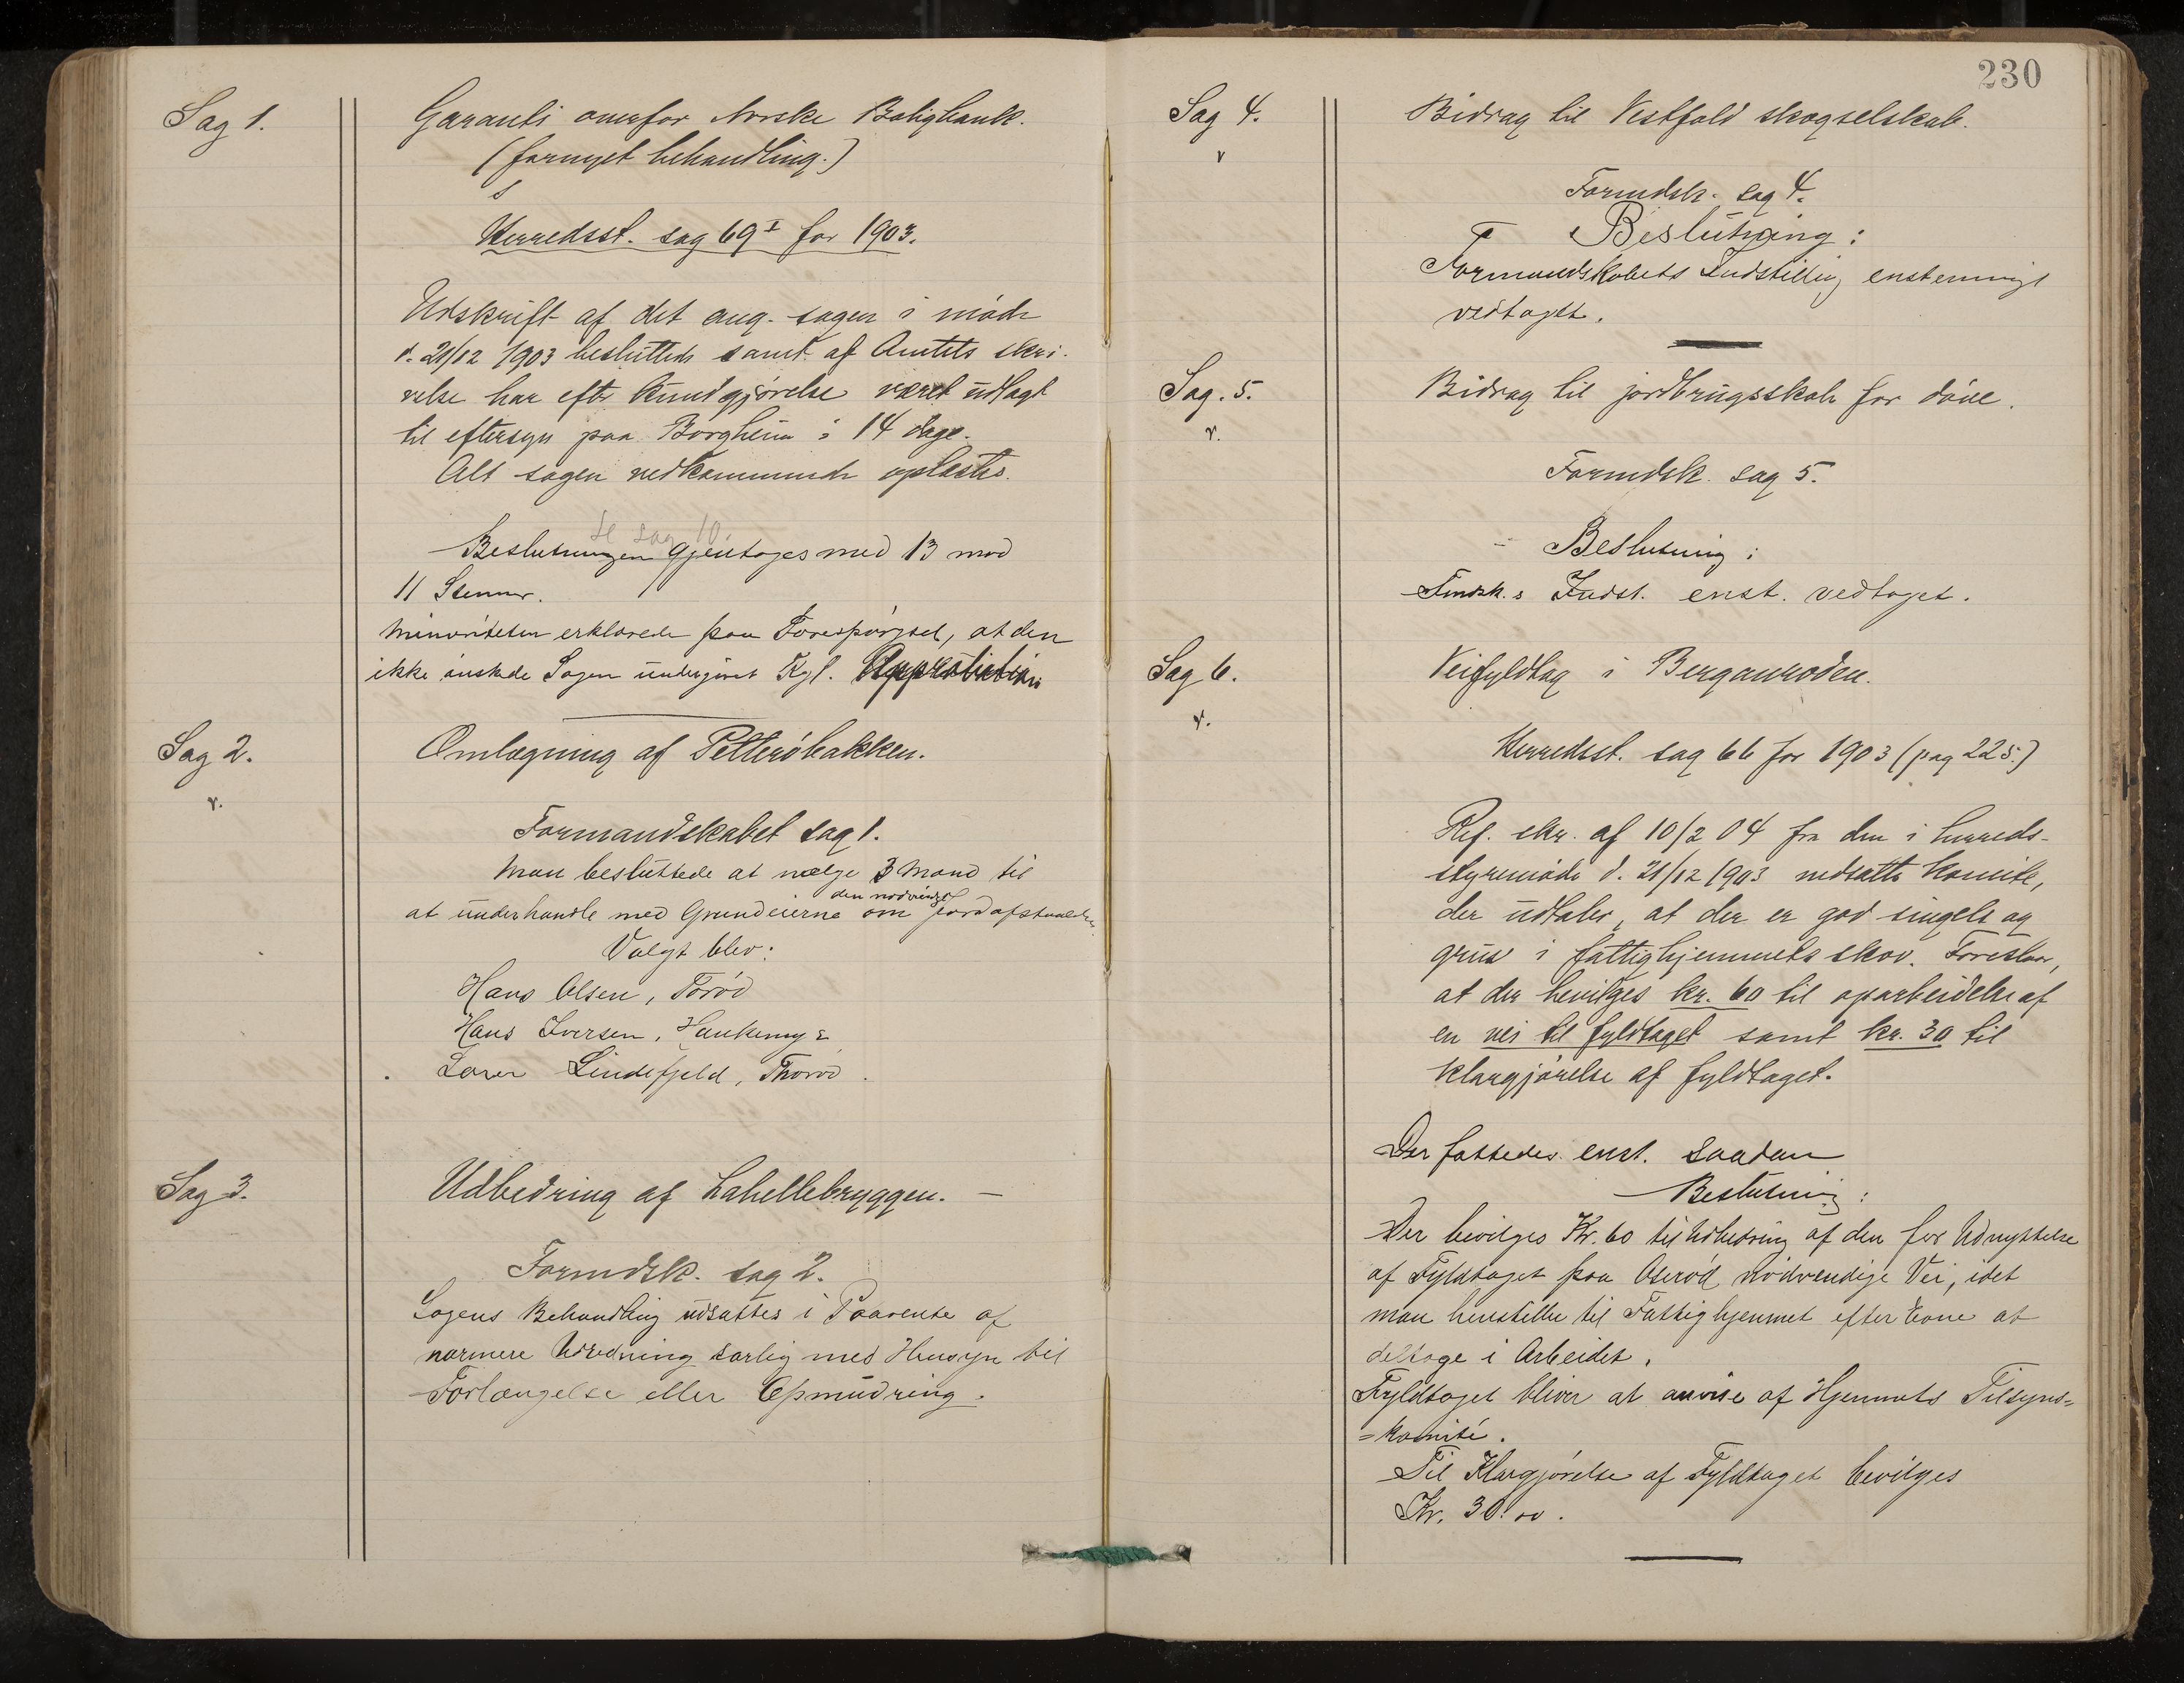 Sag 1.
Garanti overfor Norske Boligbank.
(fornyet behandling.)
Herredsst. sag 69 I for 1903.
Udskrift af det ang. sagen i møde
d. 21/12 1903 besluttede samt af Amtets skri-
velse har efter kundgjørelse været udlagt
til eftersyn paa Borgheim i 14 dage.
Alt sagen vedkommende oplæstes.
Se sag 10.
Beslutningen gjentoges med 13 mod
11 Stemmer.
Minoriteten erklærede paa Forespørgsel, at den
ikke ønskede Sagen undergivet Kgl. Approbation
Sag 2.
v.
Omlægning af Petterøbakken.
Formandskabet sag 1.
Man besluttede at vælge 3 Mænd til
den nødvendige
at underhandle med Grundeierne om jordafstaaelse.
Valgt blev:
Hans Olsen, Torød
Hans Iversen, Haukemyr
Lindefjeld, Thorød.
Sag 3.
Udbedring af Lahellebryggen. —
Formdsk. sag 2.
Sagens Behandling udsattes i Paavente af
nærmere Udredning særlig med Hensyn til
Forlængelse eller Opmudring.
230
Sag 4.
v
Bidrag til Vestfold skogselskab.
Formdsk. sag 4.
Beslutning:
Formandskabets Indstilling enstemmigt
vedtaget.
Sag. 5.
v.
Bidrag til jordbrugsskole for døve.
Formdsk. sag 5.
Beslutning:
Fmdsk.s Indst. enst. vedtaget.
Sag 6.
v.
Veifyldtag i Berganroden.
Herredsst. sag 66 for 1903 (pag 225.)
Ref. skr. af 10/2 04 fra den i herreds-
styremøde d. 21/12 1903 nedsatte komite,
der udtaler, at der er god singels og
grus i fattighjemmets skov. Foreslaar,
at der bevilges kr. 60 til oparbeidelse af
en vei til fyldtaget samt kr. 30 til
klargjørelse af fyldtaget.
Der fattedes enst. saadan
Beslutning:
Der bevilges Kr. 60 til Udbedring af den for Udnyttelse
af Fyldtaget paa Oserød nødvendige Vei, idet
man henstiller til Fattighjemmet efter Evne at
deltage i Arbeidet.
Fyldtaget bliver at anvise af Hjemmets Tilsyns=
=komité.
Til Klargjørelse af Fyldtaget bevilges
Kr. 30.00.